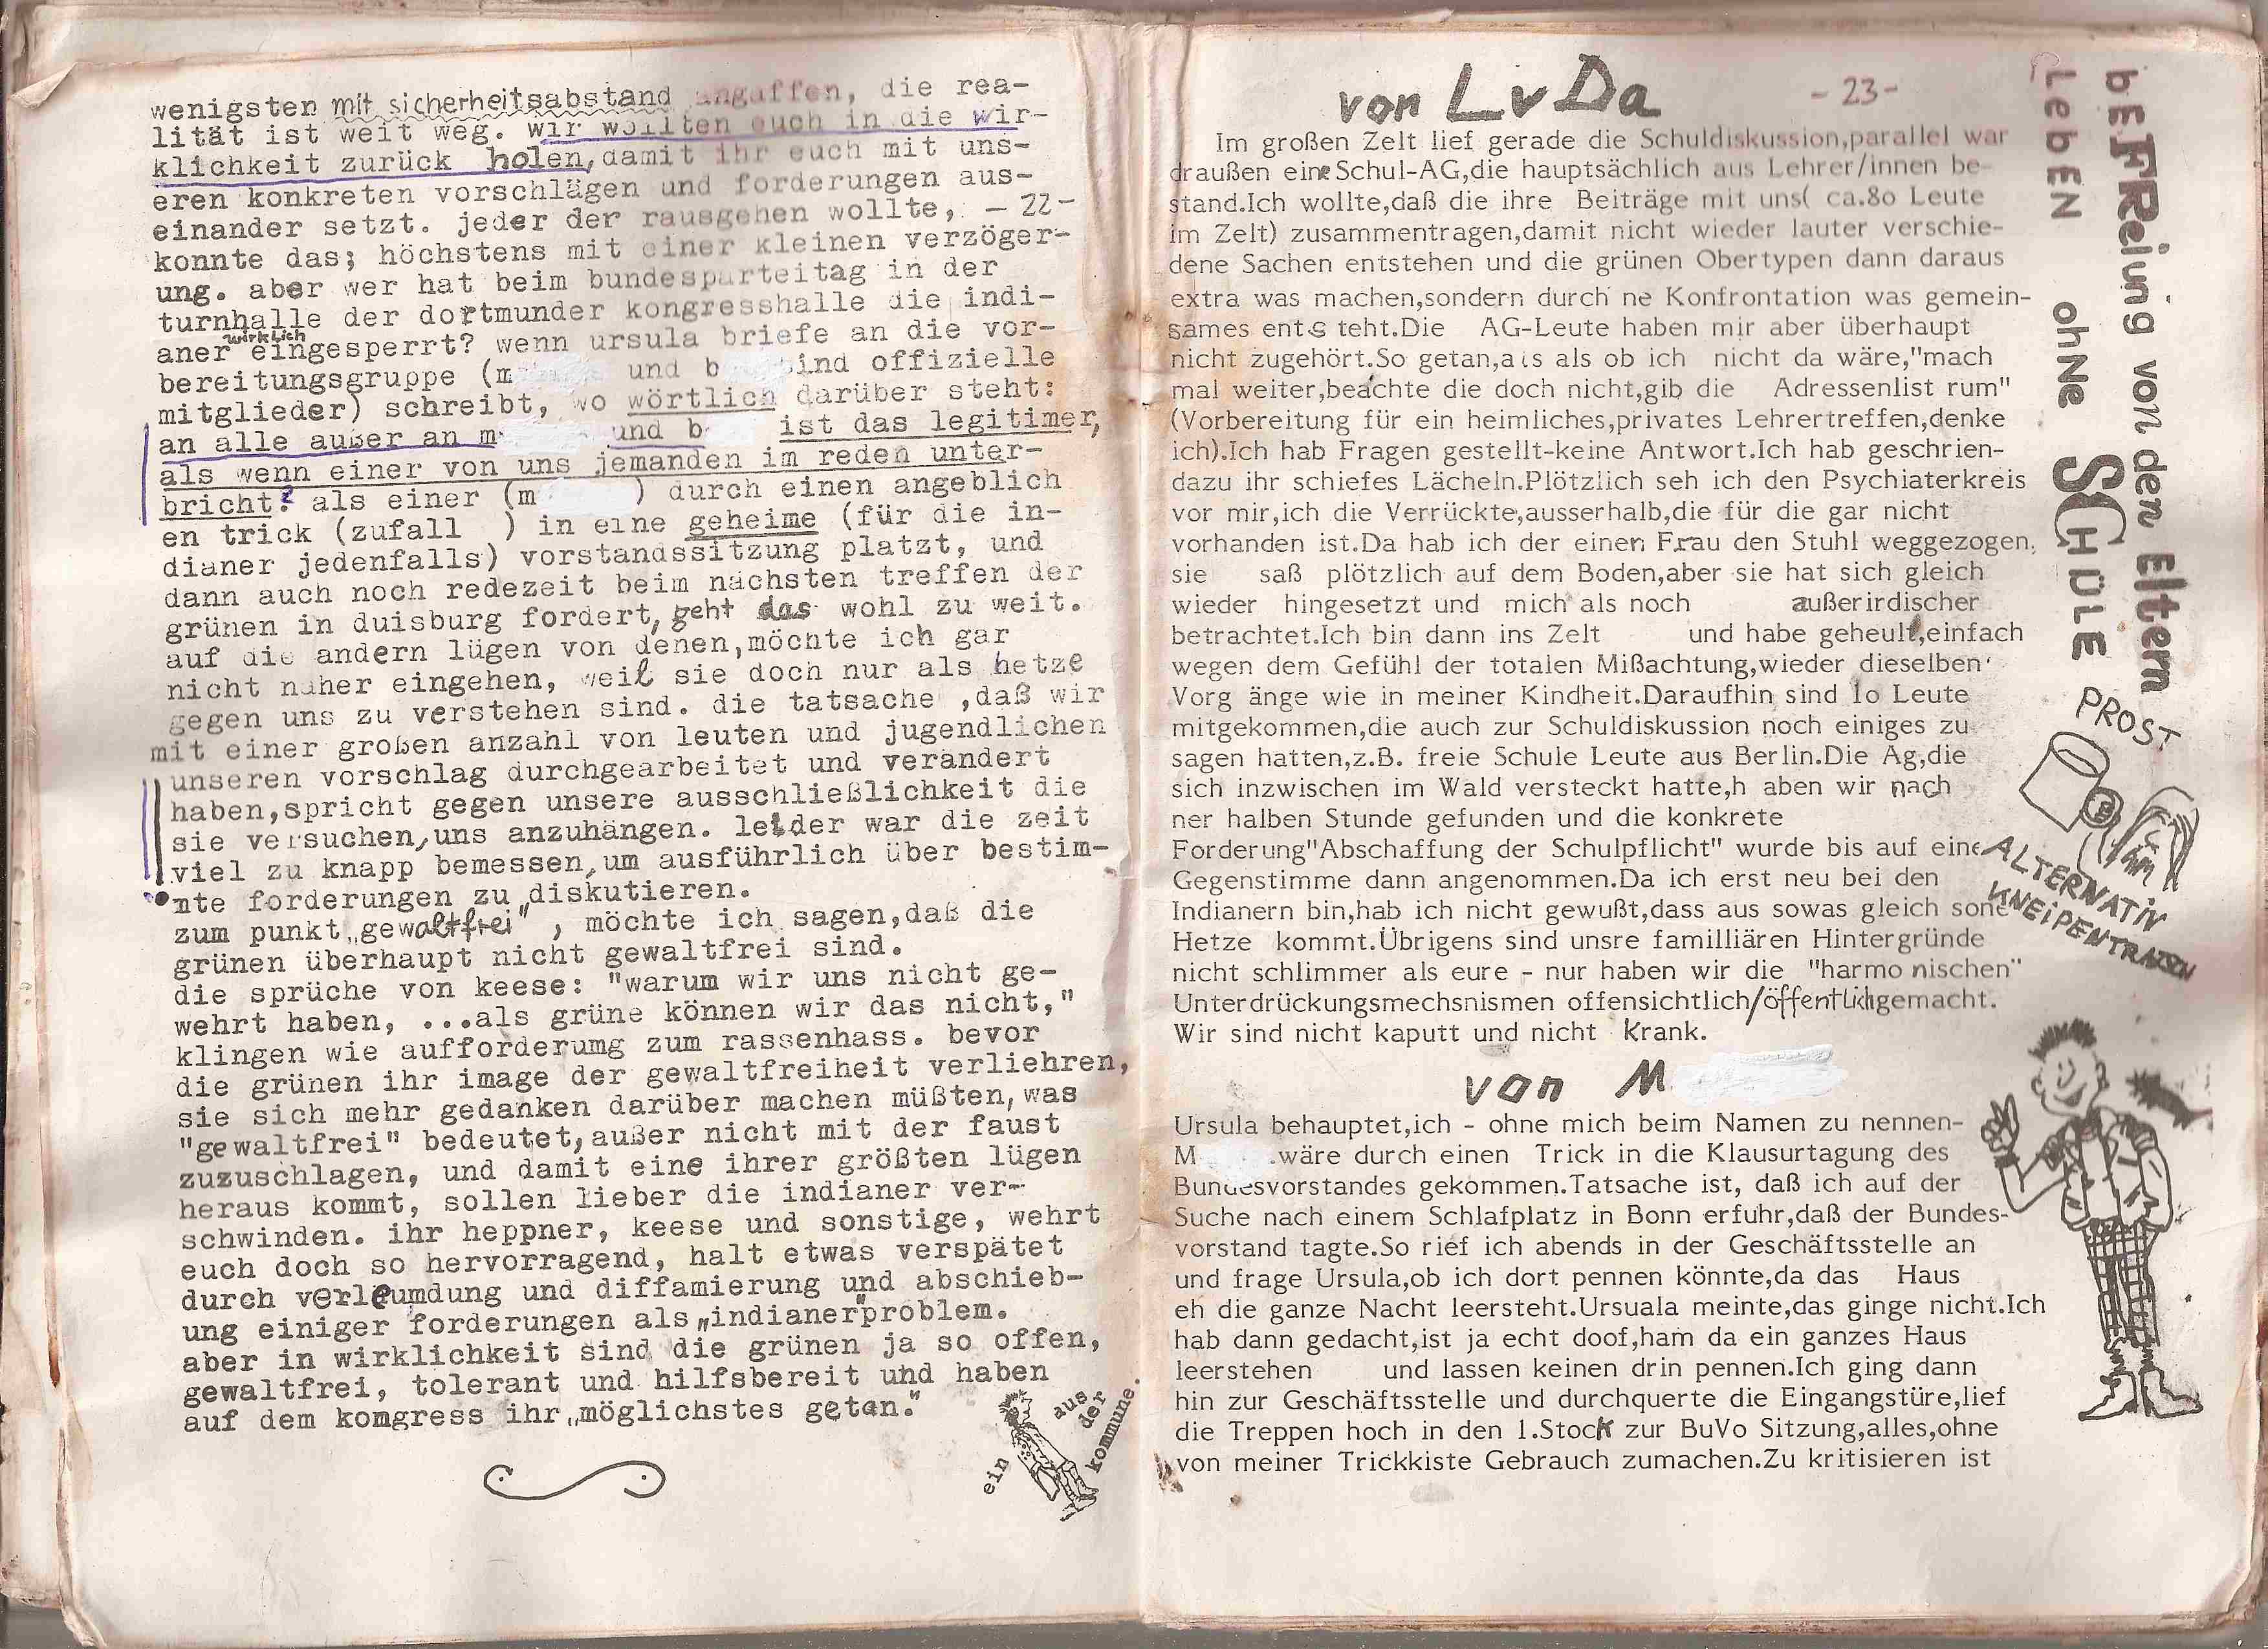 wenigsten mit sicherheitsabstand angaffen, die rea-
lität ist weit weg. wir wollten euch in die wir-
klichkeit zurück holen, damit ihr euch mit uns-
eren konkreten vorschlägen und forderungen aus-
einander setzt. jeder der rausgehen wollte, - 22 -
konnte das; höchstens mit einer kleinen verzöger-
ung. aber wer hat beim bundesparteitag in der
turnhalle der dortmunder kongresshalle die indi-
aner wirklich eingesperrt? wenn ursula briefe an die vor-
bereitungsgruppe (m und b sind offizielle
mitglieder) schreibt, wo wörtlich darüber steht:
an alle außer an m und b ist das legitimer,
als wenn einer von uns jemanden im reden unter-
bricht? als einer (m ) durch einen angeblich
en trick (zufall ) in eine geheime (für die in-
dianer jedenfalls) vorstandssitzung platzt, und
dann auch noch redezeit beim nächsten treffen der
grünen in duisburg fordert, geht das wohl zu weit.
auf die andern lügen von denen, möchte ich gar
nicht näher eingehen, weil sie doch nur als hetze
gegen uns zu verstehen sind. die tatsache ,daß wir
mit einer großen anzahl von leuten und jugendlichen
unseren vorschlag durchgearbeitet und verändert
haben,spricht gegen unsere ausschließlichkeit die
sie versuchen,uns anzuhängen. leider war die zeit
viel zu knapp bemessen,um ausführlich über bestim-
mte forderungen zu diskutieren.
zum punkt „gewaltfrei" , möchte ich sagen,daß die
grünen überhaupt nicht gewaltfrei sind.
die sprüche von keese: "warum wir uns nicht ge-
wehrt haben, ...als grüne können wir das nicht,"
klingen wie aufforderumg zum rassenhass. bevor
die grünen ihr image der gewaltfreiheit verliehren,
sie sich mehr gedanken darüber machen müßten, was
"gewaltfrei" bedeutet, außer nicht mit der faust
zuzuschlagen, und damit eine ihrer größten lügen
heraus kommt, sollen lieber die indianer ver-
schwinden. ihr heppner, keese und sonstige, wehrt
euch doch so hervorragend, halt etwas verspätet
durch verleumdung und diffamierung und abschieb-
ung einiger forderungen als „indianer"problem.
aber in wirklichkeit sind die grünen ja so offen,
gewaltfrei, tolerant und hilfsbereit und haben
auf dem komgress ihr „möglichstes getan."
ein
aus
der
kommune.
von LvDa
- 23 -
Im großen Zelt lief gerade die Schuldiskussion,parallel war
draußen eine Schul-AG,die hauptsächlich aus Lehrer/innen be-
stand.Ich wollte,daß die ihre Beiträge mit uns( ca.8o Leute
im Zelt) zusammentragen,damit nicht wieder lauter verschie-
dene Sachen entstehen und die grünen Obertypen dann daraus
extra was machen,sondern durch ne Konfrontation was gemein-
sames ents teht.Die AG-Leute haben mir aber überhaupt
nicht zugehört.So getan,als als ob ich nicht da wäre,"mach
mal weiter,beachte die doch nicht,gib die Adressenlist rum"
(Vorbereitung für ein heimliches,privates Lehrertreffen,denke
ich).Ich hab Fragen gestellt-keine Antwort.Ich hab geschrien-
dazu ihr schiefes Lächeln.Plötzlich seh ich den Psychiaterkreis
vor mir,ich die Verrückte,ausserhalb,die für die gar nicht
vorhanden ist.Da hab ich der einen Frau den Stuhl weggezogen,
sie saß plötzlich auf dem Boden,aber sie hat sich gleich
wieder hingesetzt und mich als noch außerirdischer
betrachtet.Ich bin dann ins Zelt und habe geheult,einfach
wegen dem Gefühl der totalen Mißachtung,wieder dieselben
Vorg änge wie in meiner Kindheit.Daraufhin sind 1o Leute
mitgekommen,die auch zur Schuldiskussion noch einiges zu
sagen hatten,z.B. freie Schule Leute aus Berlin.Die Ag,die
sich inzwischen im Wald versteckt hatte,h aben wir nach
ner halben Stunde gefunden und die konkrete
Forderung"Abschaffung der Schulpflicht" wurde bis auf eine
Gegenstimme dann angenommen.Da ich erst neu bei den
Indianern bin,hab ich nicht gewußt,dass aus sowas gleich sone
Hetze kommt.Übrigens sind unsre familliären Hintergründe
nicht schlimmer als eure - nur haben wir die "harmo nischen"
Unterdrückungsmechsnismen offensichtlich/öffentlich gemacht.
Wir sind nicht kaputt und nicht Krank.
von M
Ursula behauptet,ich - ohne mich beim Namen zu nennen-
M .wäre durch einen Trick in die Klausurtagung des
Bundesvorstandes gekommen.Tatsache ist, daß ich auf der
Suche nach einem Schlafplatz in Bonn erfuhr,daß der Bundes-
vorstand tagte.So rief ich abends in der Geschäftsstelle an
und frage Ursula,ob ich dort pennen könnte,da das Haus
eh die ganze Nacht leersteht.Ursuala meinte,das ginge nicht.Ich
hab dann gedacht,ist ja echt doof,ham da ein ganzes Haus
leerstehen und lassen keinen drin pennen.Ich ging dann
hin zur Geschäftsstelle und durchquerte die Eingangstüre,lief
die Treppen hoch in den 1.Stock zur BuVo Sitzung,alles,ohne
von meiner Trickkiste Gebrauch zumachen.Zu kritisieren ist
bEFReiung von den Eltern
LebEN ohNe SCHÜLE
PROST
ALTERNATIV
KNEIPENTRATSCH